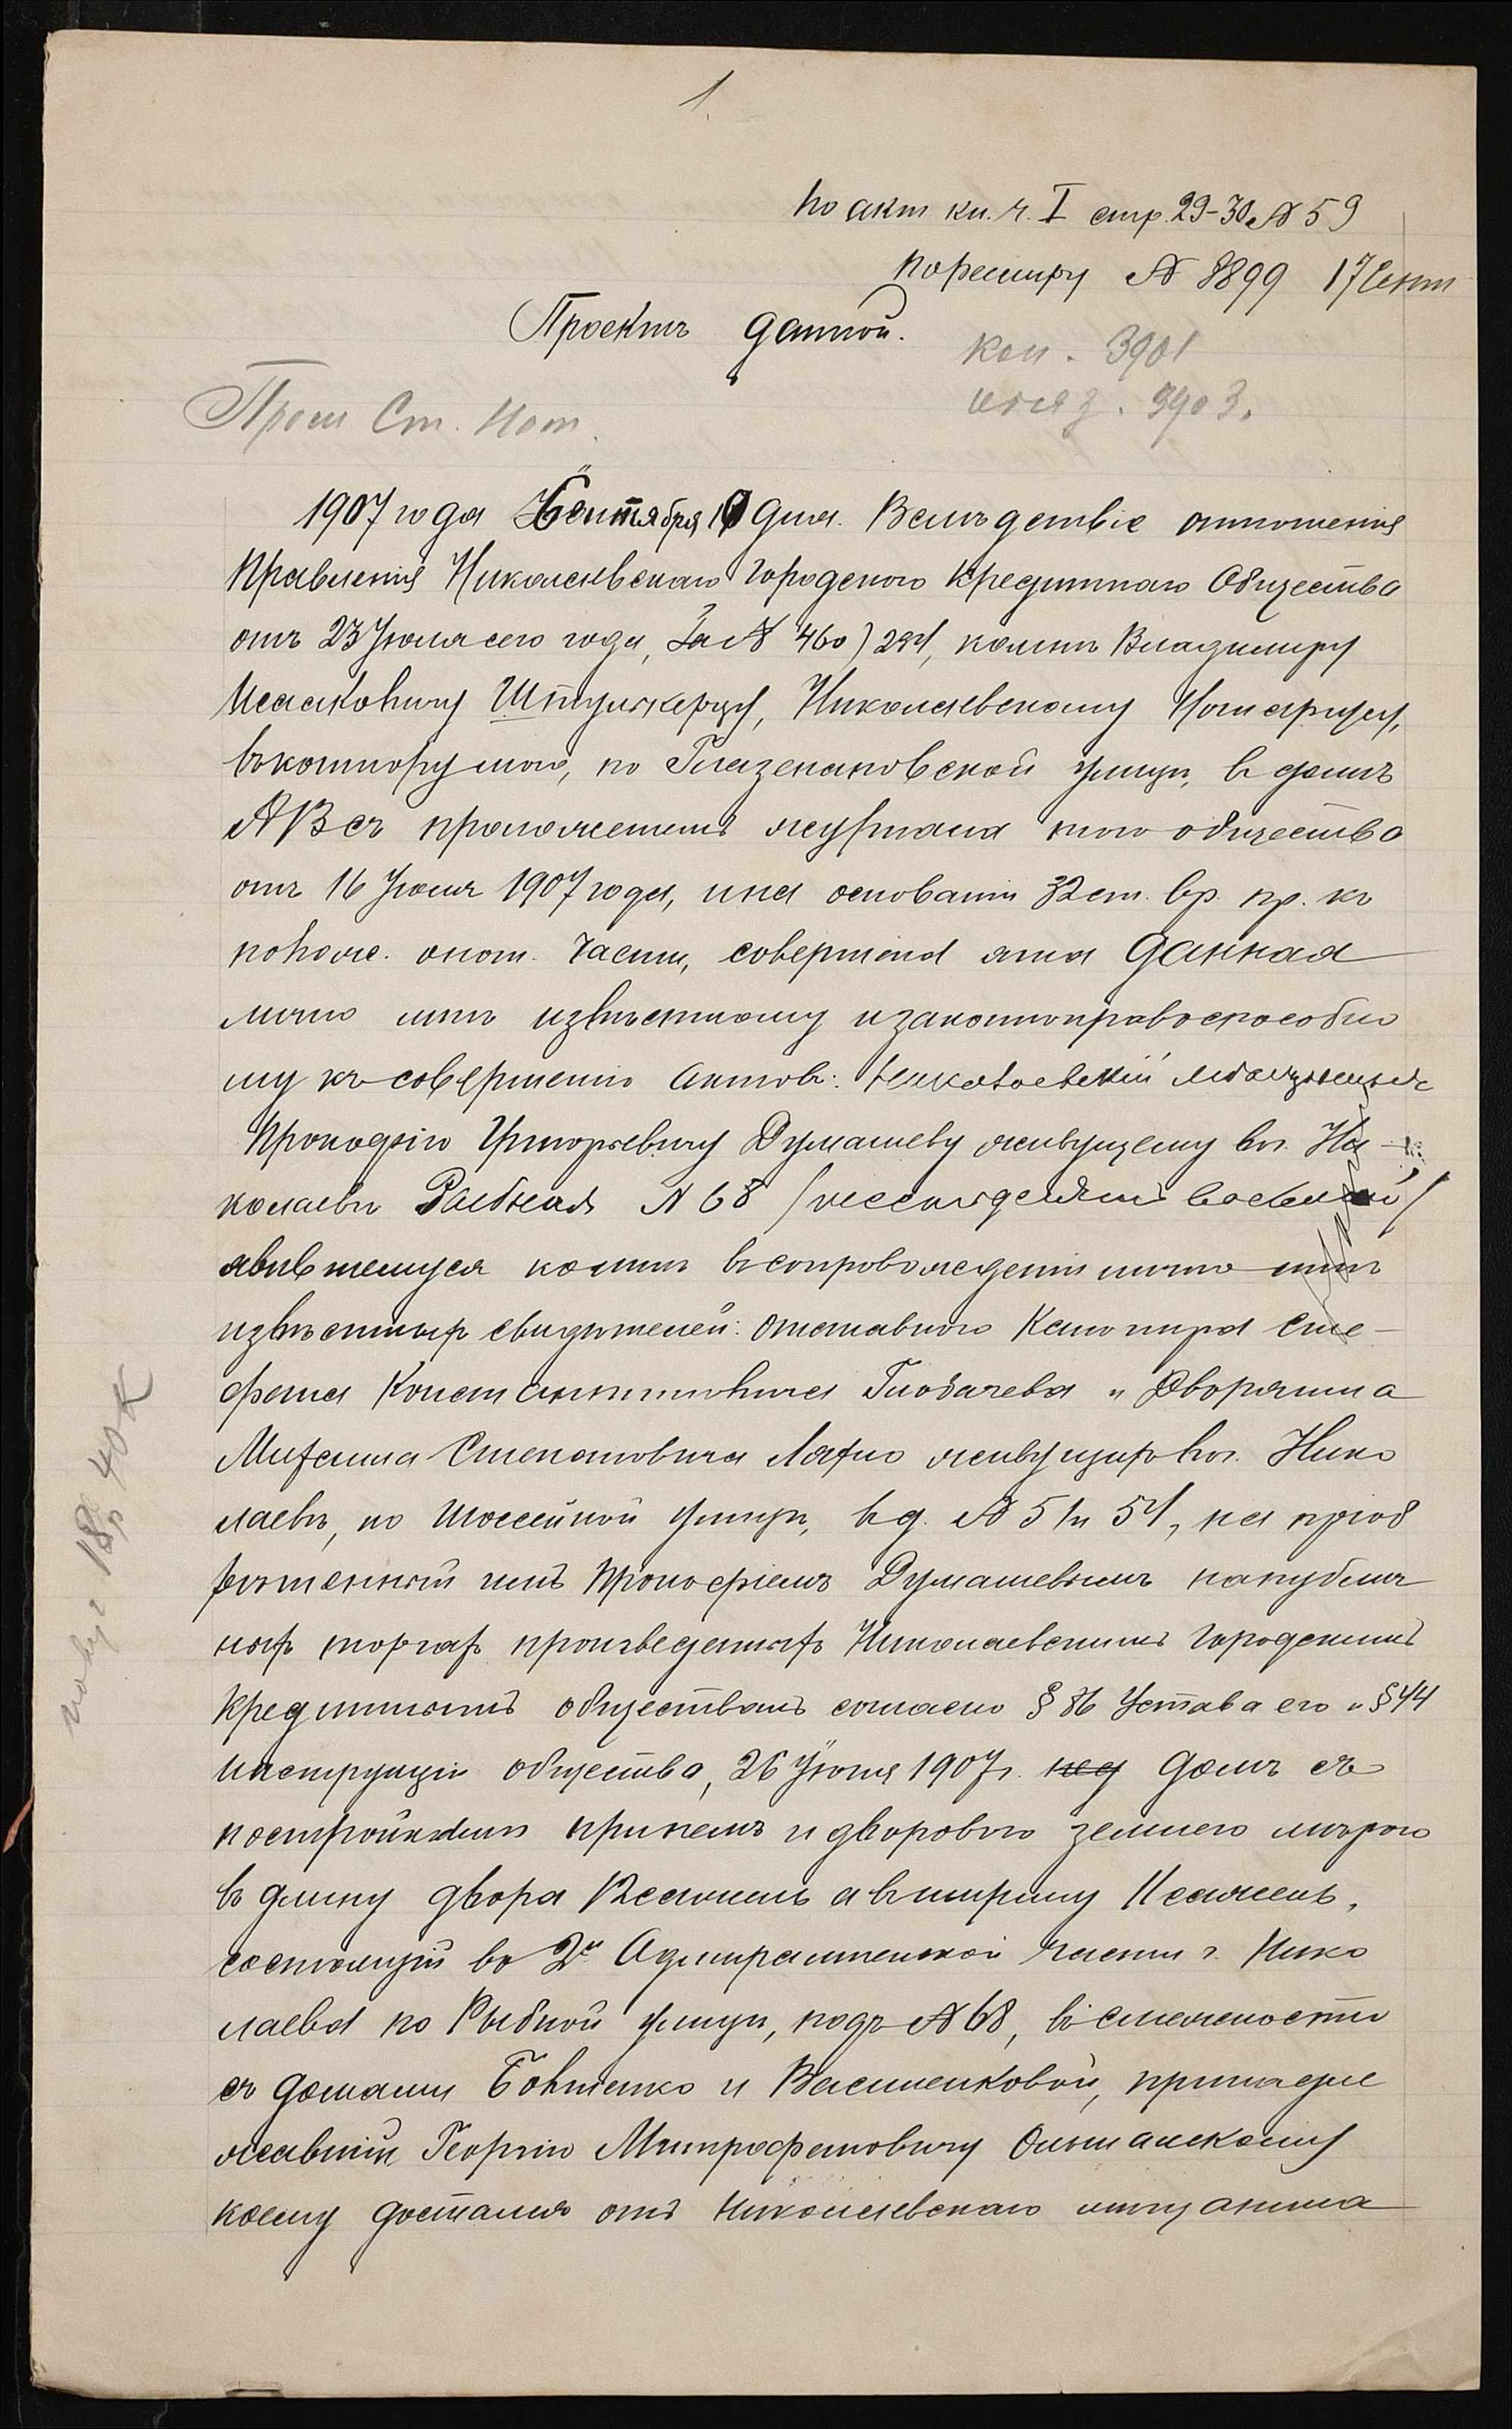 1.
По акт кн. ч. I стр. 29-30 № 59
По реестру № 8899 17 Сент
Проектъ данной.
Коп. 3901
3903.
Ст. Нот.
1907 года Сентября 10 дня. Вслѣдствіе отношенія
Правленія Николаевскаго Городского Кредитнаго Общества
отъ 23 Іюля сего года, за № 460/294, комнѣ Владимиру
Исааковичу Штулькерцу, Николаевскому Нотаріусу,
въ контору мою, по Глазенаповской улицѣ, въ домѣ
№ 13 съ приложеніемъ журнала того общества
отъ 16 Іюля 1907 года, и на основаніи 32 ст. вр. пр. къ
полож. о нот. части, совершена эта Данная
лично мнѣ извѣстному и законноправоспособно
му къ совершенію актовъ: Николаевскій мѣщанинъ
Прокофію Григорьевичу Думашеву живущему въ г. Ни-
колаевѣ Рыбная № 68 /шесдесятъ восемой/
явившемуся комнѣ въ сопровожденіи лично мнѣ
извѣстныхъ свидѣтелей: отставного Канонира Сте-
фана Константиновича Глобачева и Дворянина
Михаила Степановича Лахно живущихъ въ г. Нико
лаевѣ, по Шоссейной улицѣ, въ д. № 51 и 54, на пріоб
рѣтенный имъ Прокофіемъ Думашевымъ на публич
ныхъ торгахъ произведенныхъ Николаевскимъ Городскимъ
Кредитнымъ обществомъ согласно § 86 Устава его и § 44
Инструкціи общества, 26 Іюня 1907 г. домъ съ
постройками при немъ и дворовою землею мѣрою
въ длину двора 12 саженъ а въ ширину 11 саженъ,
состоящій во 2й Адмиралтейской части г. Нико
лаева по Рыбной улицѣ, подъ № 68, въ смежности
съ домами Бовтенко и Василенковой, принадле
жавшій Георгію Митрофановичу Ольшанскому
коему достался отъ Николаевскаго мѣщанина
18 р 40 к